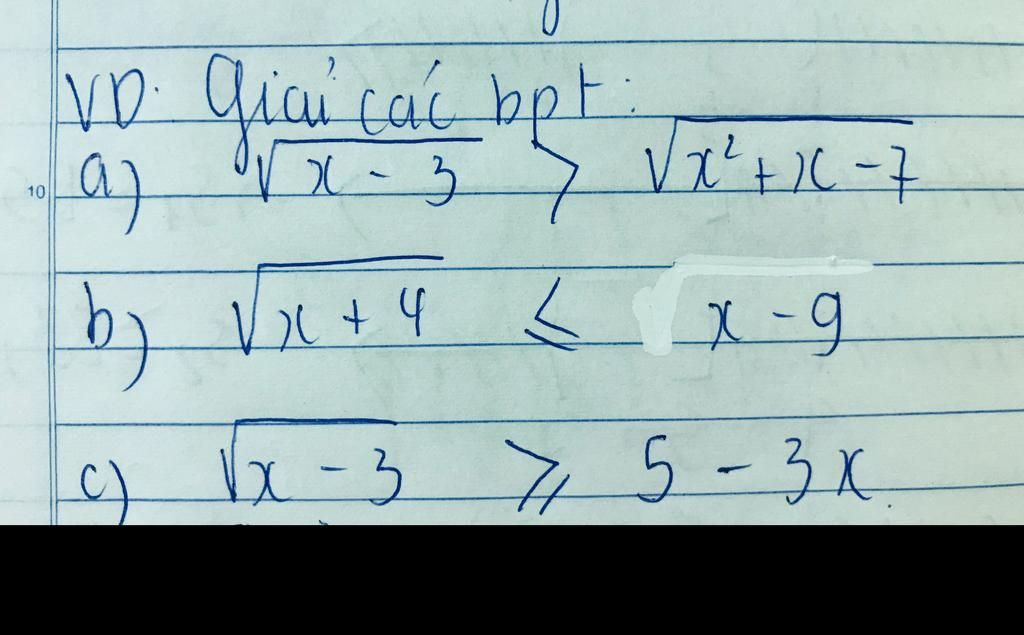 10
VD. Giải các bpt:
a) √(x - 3) > √(x² + x - 7)
b) √(x + 4) ≤ x - 9
c) √(x - 3) ≥ 5 - 3x.